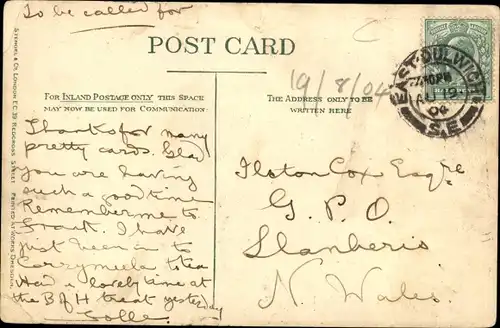 To be called for
POST CARD
FOR INLAND POSTAGE ONLY THIS SPACE
MAY NOW BE USED FOR COMMUNICATION.
THE ADDRESS ONLY TO BE
WRITTEN HERE
19/8/04
EAST DULWICH
04
S.E.
Thanks for many
pretty cards. Glad
you are having
such a good time
Remember me to
Frank. I have
just been in to
to tea
Had a lovely time at
the B of H treat yesterday
Ilston Cox Esqre
G. P. O.
Llanberis
N. Wales.
STEWART & CO. LONDON E.C. 39 REDCROSS STREET PRINTED AT WORKS DRESDEN.